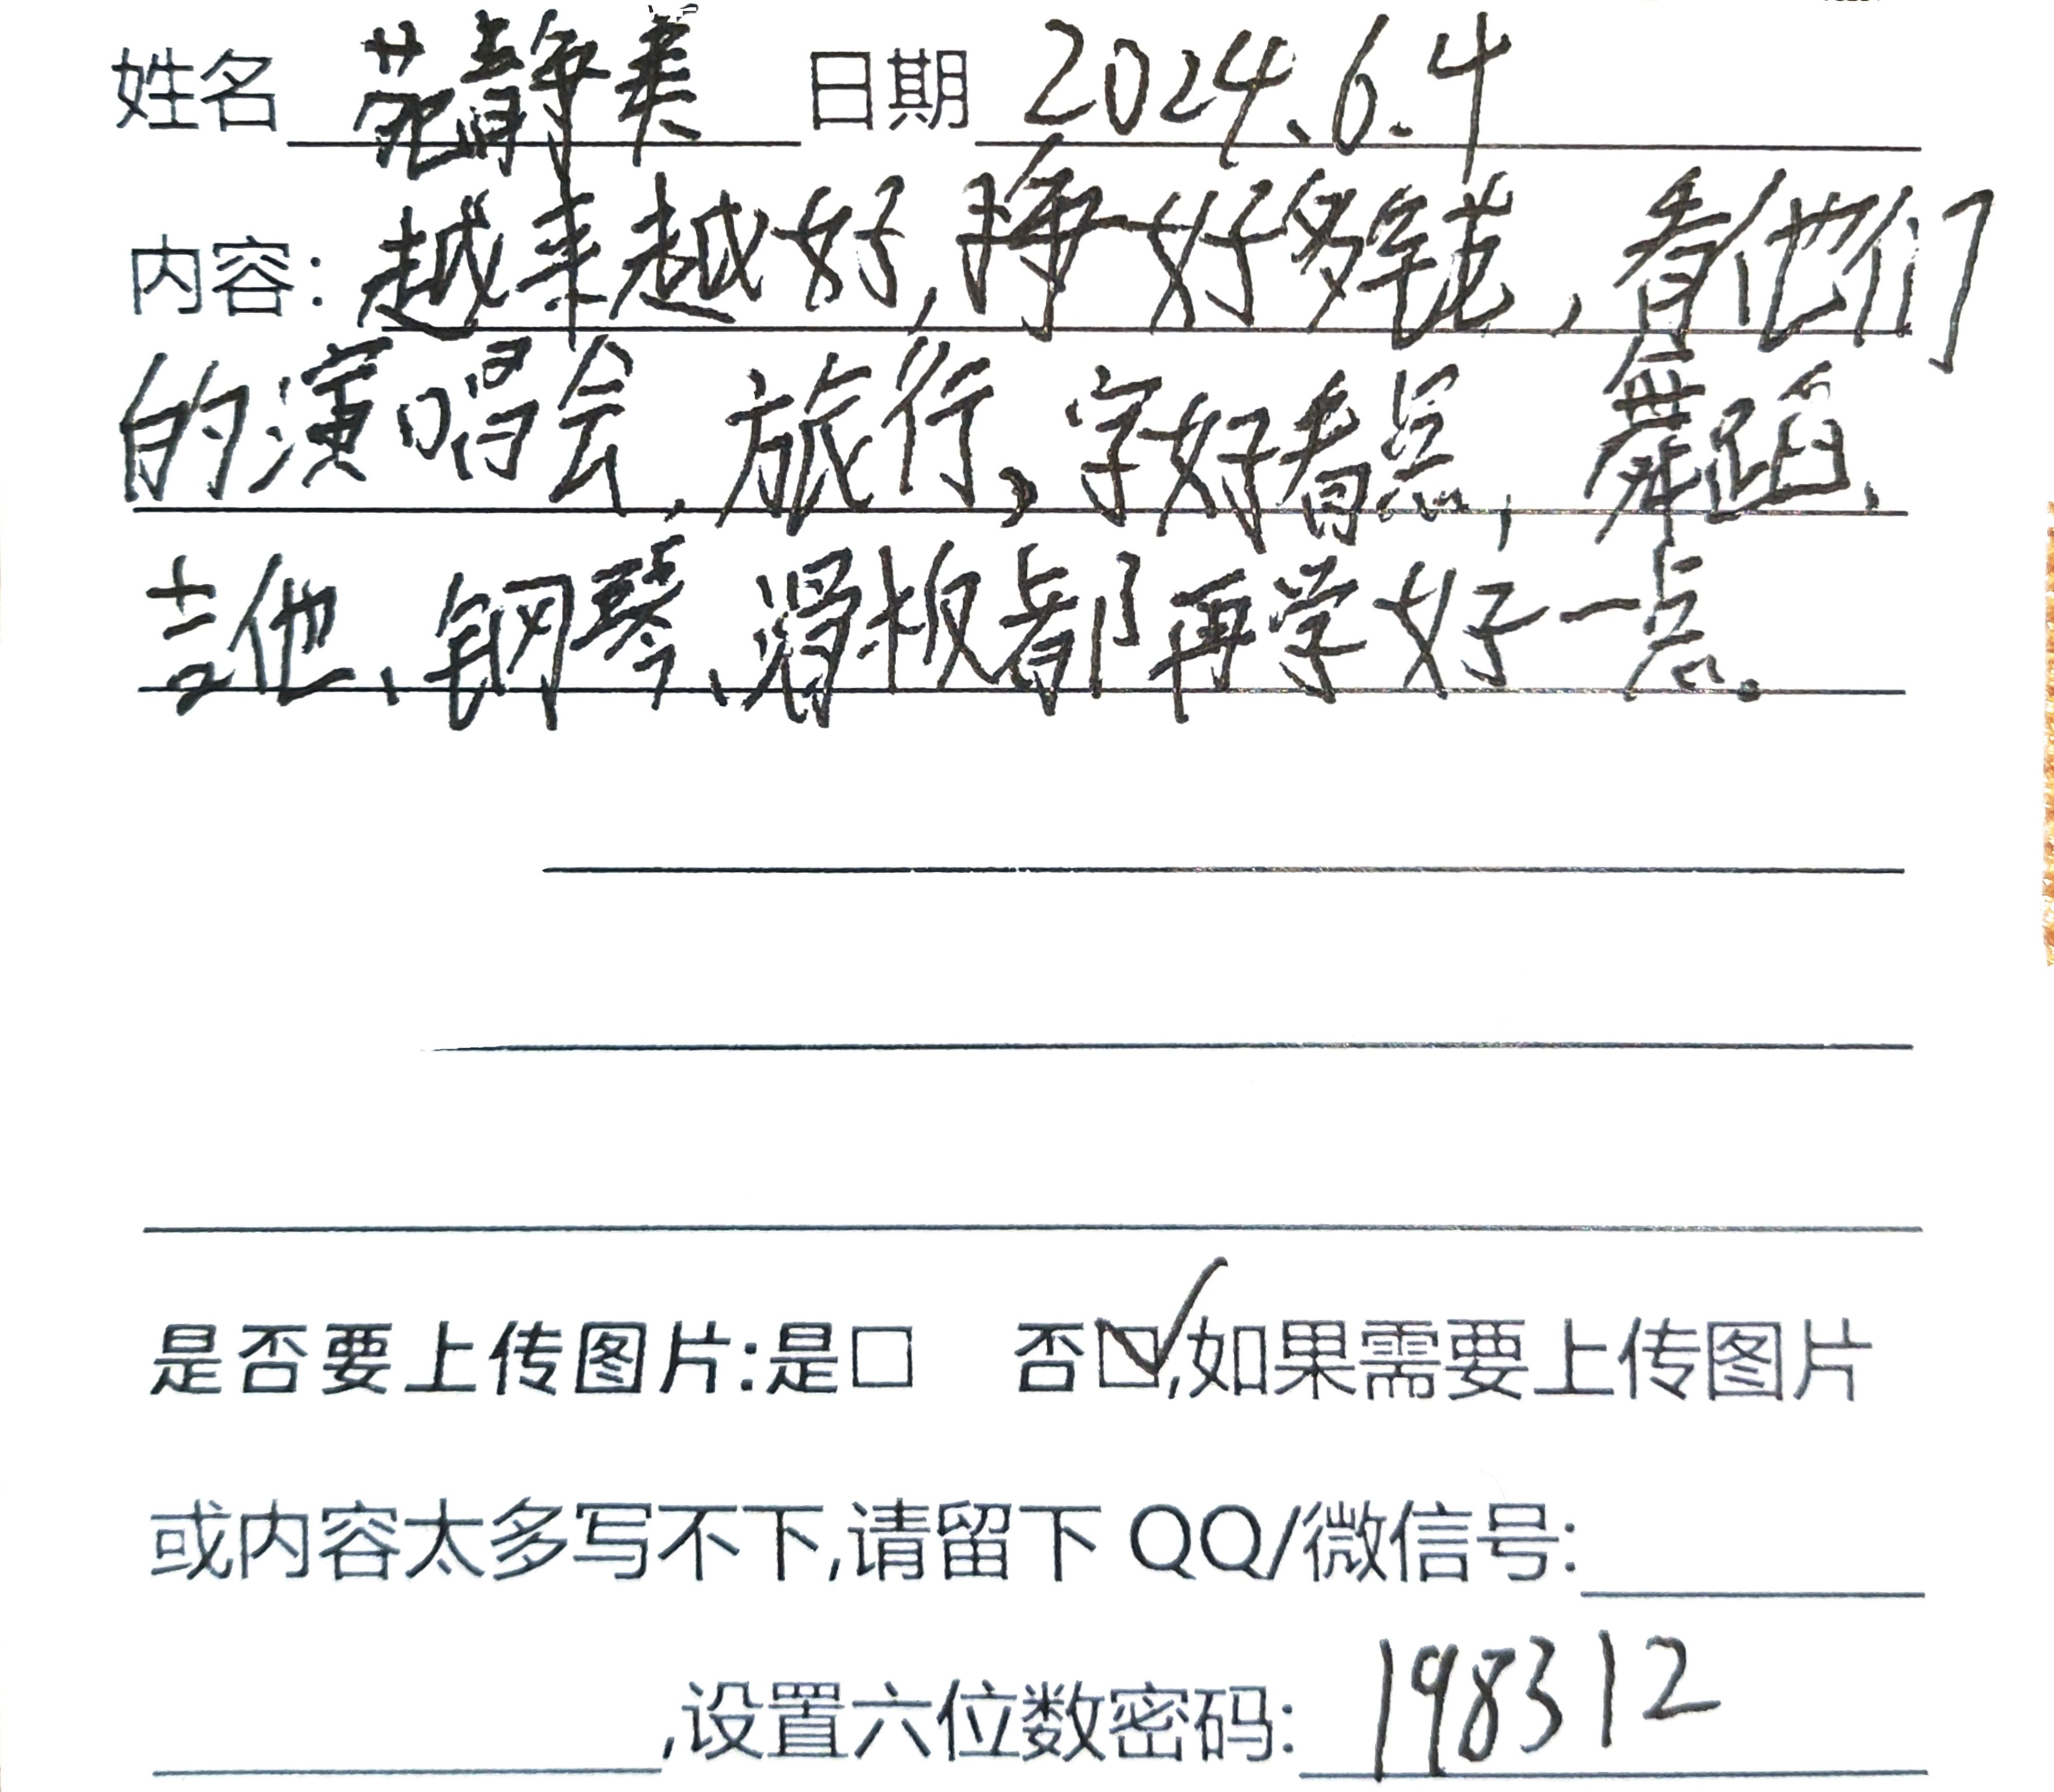 姓名 苑静美 日期 2024.6.4
内容: 越来越好,挣好多钱,看他们
的演唱会,旅行,字好看点,舞蹈、
吉他、钢琴、滑板都再学好一点。
是否要上传图片:是□ 否☑,如果需要上传图片
或内容太多写不下,请留下 QQ/微信号:
,设置六位数密码: 198312